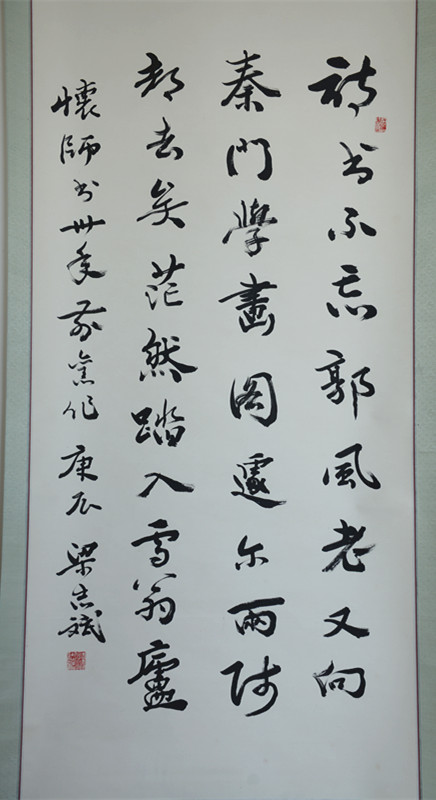 书不忘郭風老又向
秦門學畫图遽尔兩师
都去矣茫然踏入雪翁廬
懷師书卅年前舊作 庚辰 梁志斌